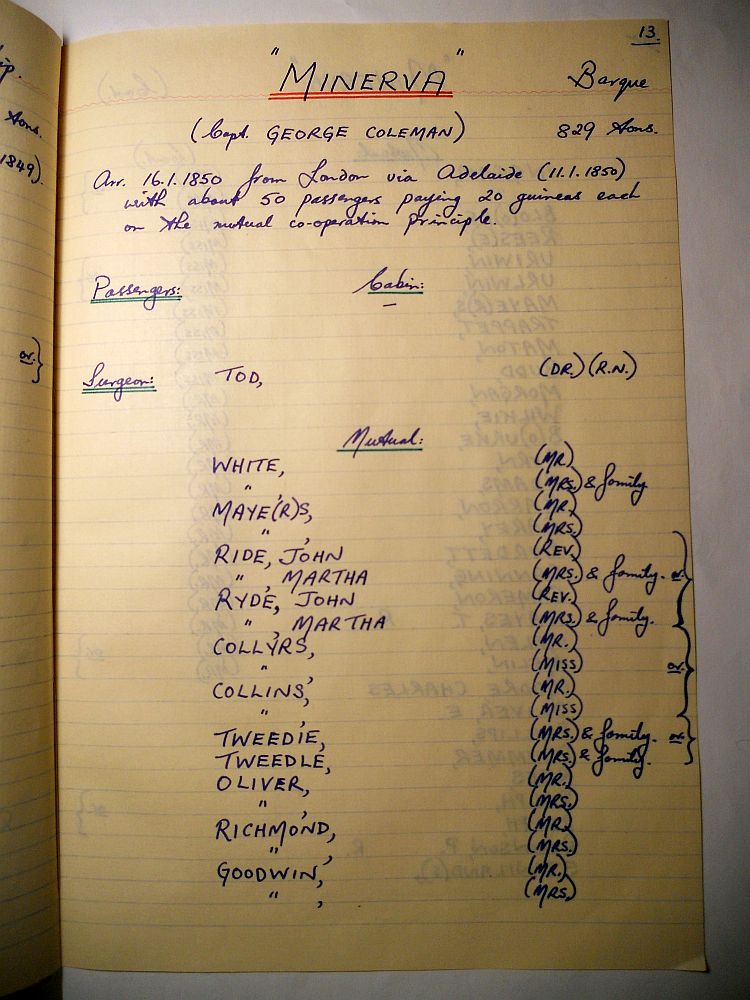 13.
"MINERVA" Barque
(Capt. GEORGE COLEMAN) 829 tons.
Arr. 16.1.1850 from London via Adelaide (11.1.1850)
with about 50 passengers paying 20 guineas each
on the mutual co-operation principle.
Passengers: Cabin:
—
Surgeon: TOD, (DR.) (R.N.)
Mutual:
WHITE, (MR.)
" , (MRS.) & family
MAYE(R)S, (MR.)
" , (MRS.)
RIDE, JOHN (REV.)
" , MARTHA (MRS.) & family. or
RYDE, JOHN (REV.)
" , MARTHA (MRS.) & family.
COLLYRS, (MR.)
" , (MISS) or
COLLINS, (MR.)
" , (MISS)
TWEEDIE, (MRS.) & family. or
TWEEDLE, (MRS.) & family.
OLIVER, (MR.)
" , (MRS.)
RICHMOND, (MR.)
" , (MRS.)
GOODWIN, (MR.)
" , (MRS.)
tons.
1849).
or }